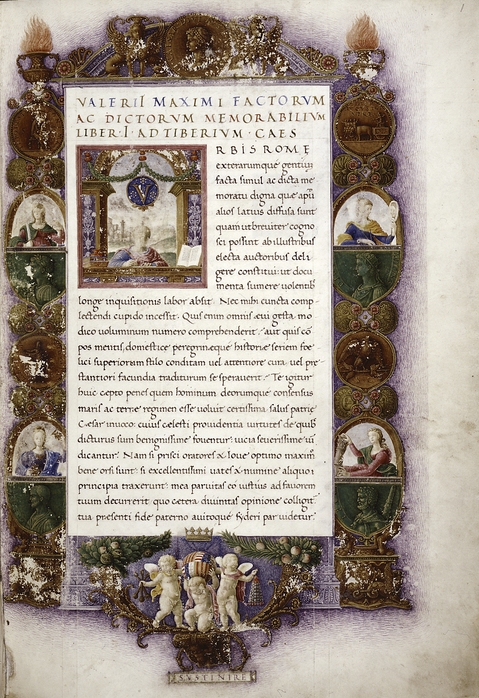 VALERII MAXIMI FACTORVM
AC DICTORVM MEMORABILIVM
LIBER·I·AD TIBERIVM·CAES
V
RBIS ROMĘ
exterarumque gentiū
facta simul ac dicta me
moratu digna que apū
alios latius diffusa sunt
quam ut breuiter cogno
sci possint ab illustribus
electa auctoribus deli
gere constitui: ut docu
menta sumere uolentib
longe inquisitionis labor absit. Nec mihi cuncta comp
lectendi cupido incessit. Quis enim omnis eui gesta mo
dico uoluminum numero comprehenderit: aut quis cō
pos mentis domestice peregrineque historie seriem foe
lici superiorum stilo conditam uel attentiore cura uel pre
stantiori facundia traditurum se sperauerit. Te igitur
huic cepto penes quem hominum deorumque consensus
maris ac terre regimen esse uoluit certissima salus patrie
Cesar inuoco: cuius celesti prouidentia uirtutes de quib
dicturus sum benignissime fouentur: uicia seuerissime uī
dicantur. Nam si prisci oratores a Ioue optimo maxim̄
bene orsi sunt: si excellentissimi uates a numine aliquo
principia traxerunt: mea paruitas eo iustius ad fauorem
tuum decurrerit quo cetera diuinitas opinione colligit̄
tua presenti fide paterno auitoque syderi par uidetur.
SVSTINERE